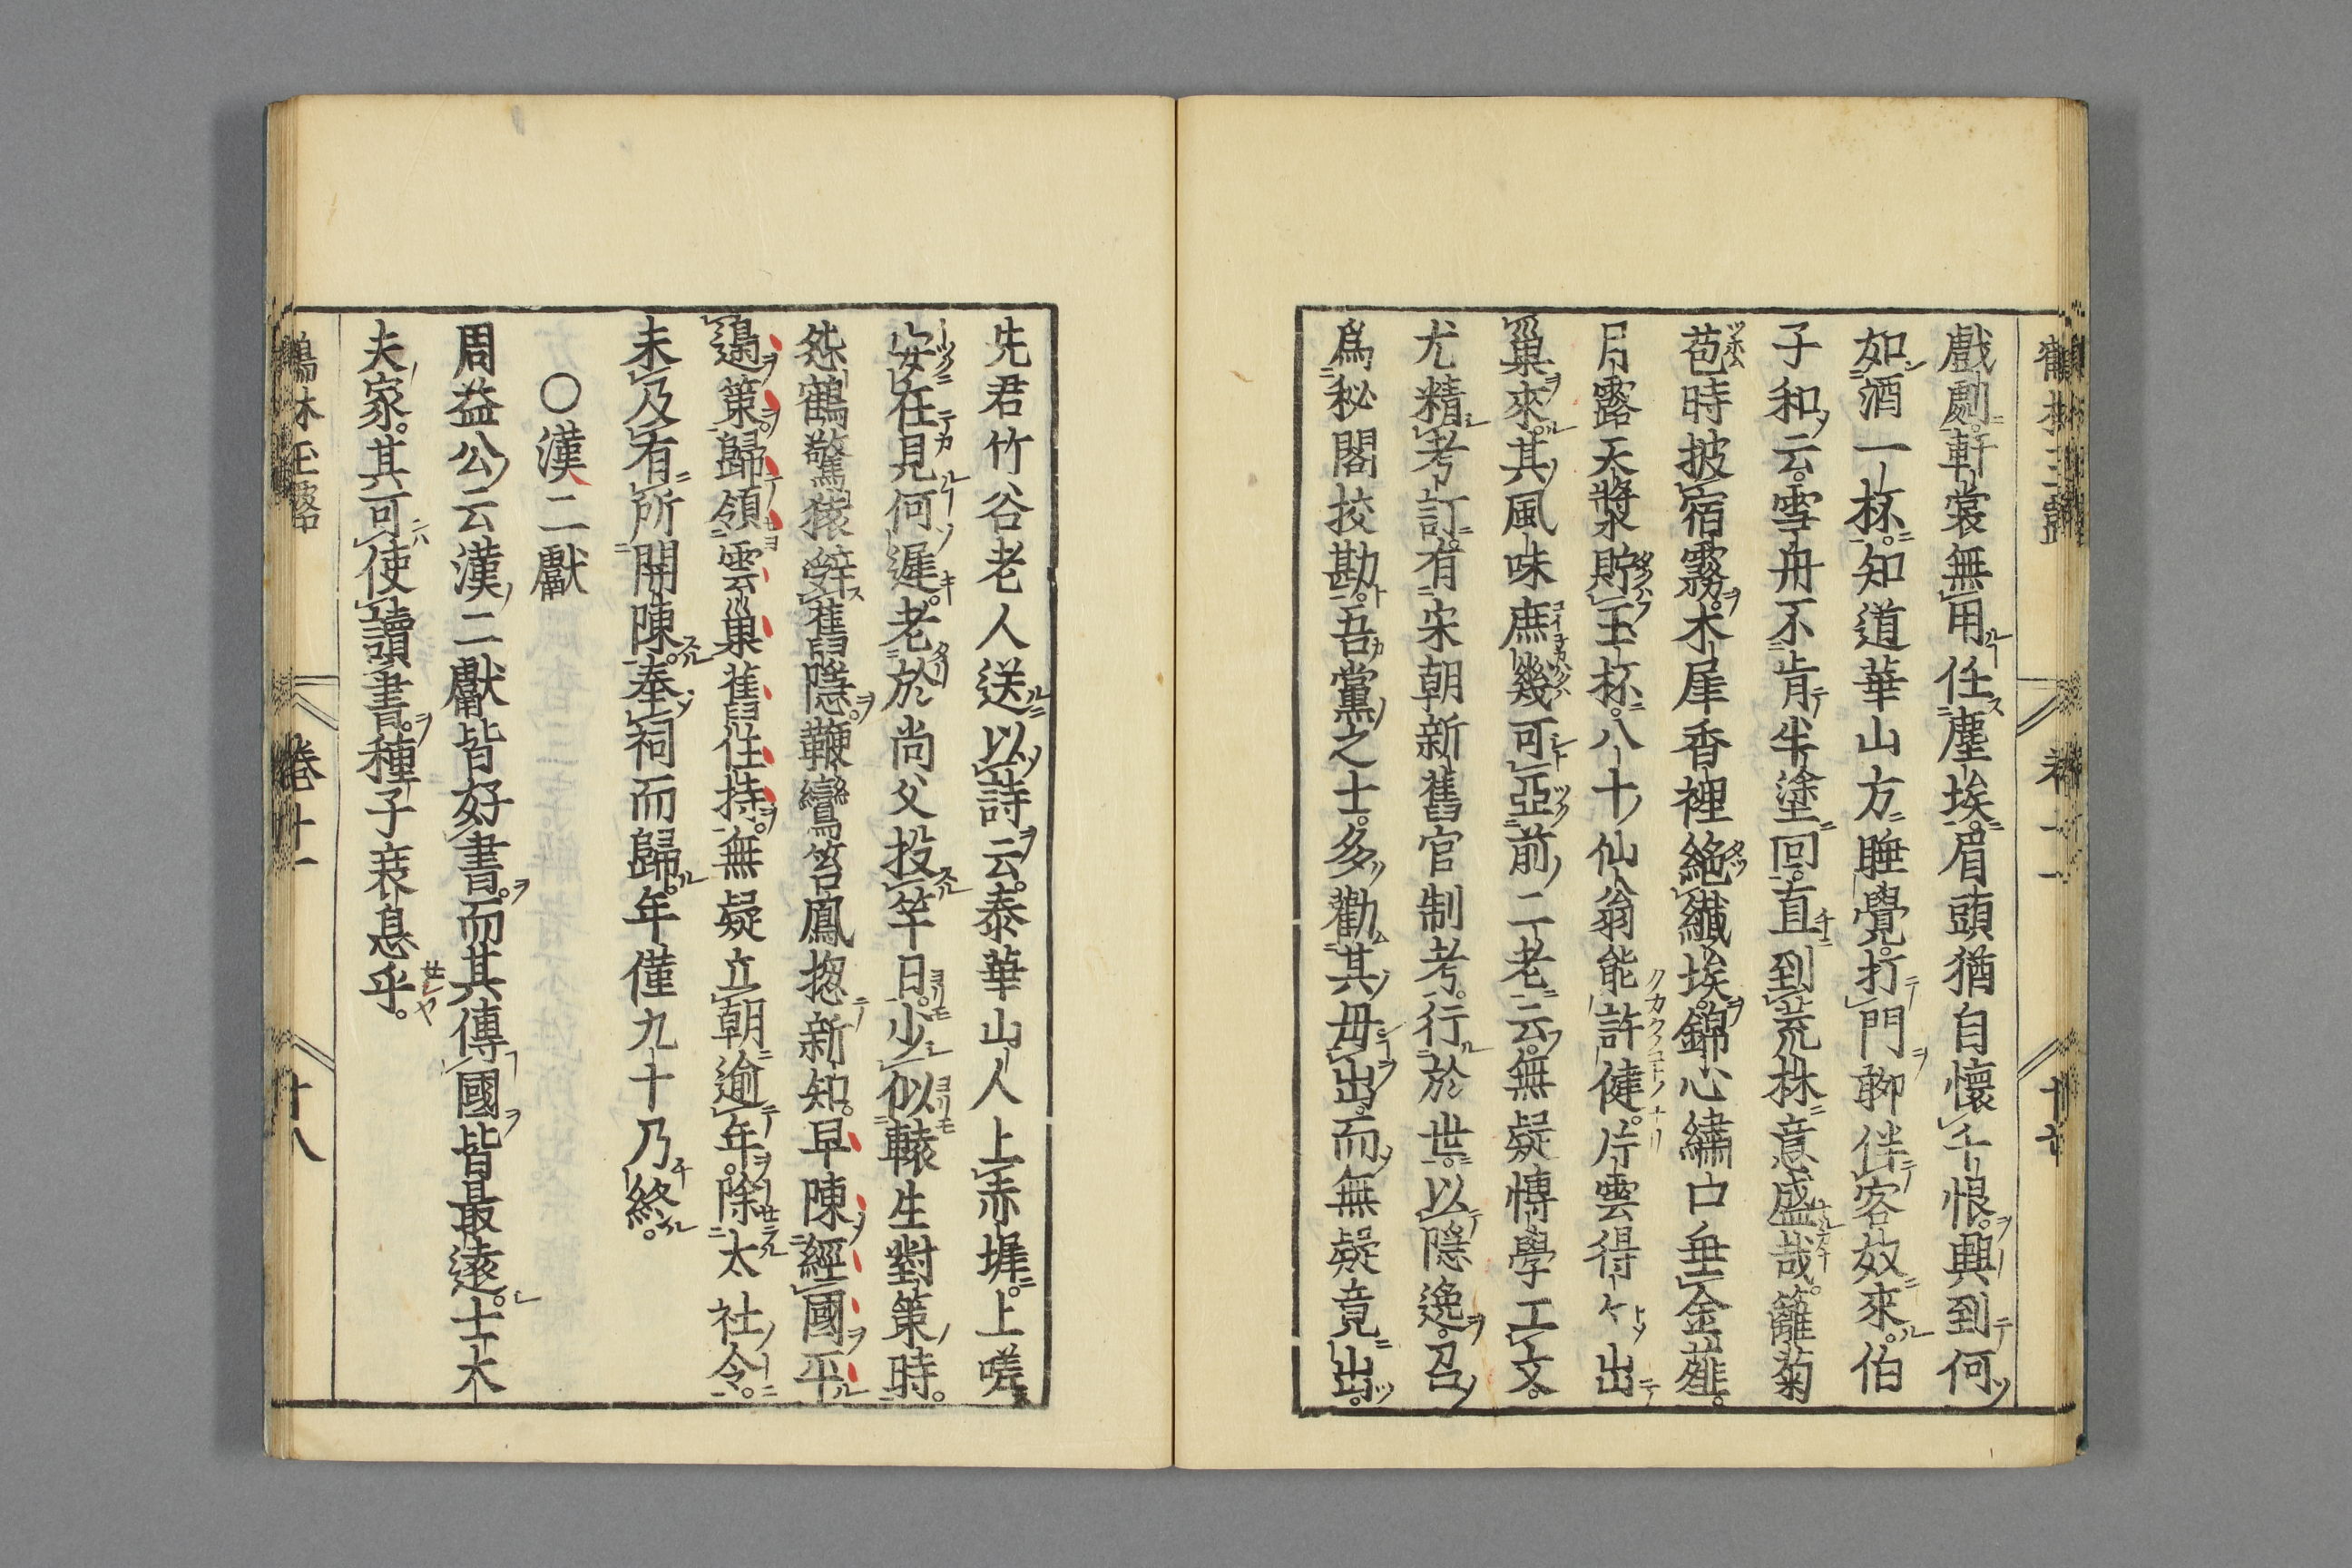 戲劇軒裳無用任塵埃眉頭猶自懷千恨興到何
如酒一杯知道華山方睡覺打門聊伴客敀來伯
子和云雪舟不肯半塗回直到荒株意盛哉籬菊
苞時披宿霧木犀香裡絶纖埃錦心繡口垂金薤
月露天漿貯玉杯八十仙翁能許健片雲得々出
巢來其風味庶幾可亞前二老云無疑博學工文
尤精考訂有宋朝新舊官制考行於世以隱逸召
爲秘閣挍勘吾黨之士多勸其毋出而無疑竟出
先君竹谷老人送以詩云泰華山人上赤墀上嗟
安在見何遲老於尚父投竿日少似轅生對策時
怨鶴驚猿辭舊隱鞭鸞笞鳳揔新知早陳經國平
邊策歸領雲巢舊住持無疑立朝逾年除太社令
未及有所開陳奉祠而歸年僅九十乃終
○漢二獻
周益公云漢二獻皆好書而其傳國皆最遠士大
夫家其可使讀書種子衰息乎
鶴林玉露 卷十一 十八